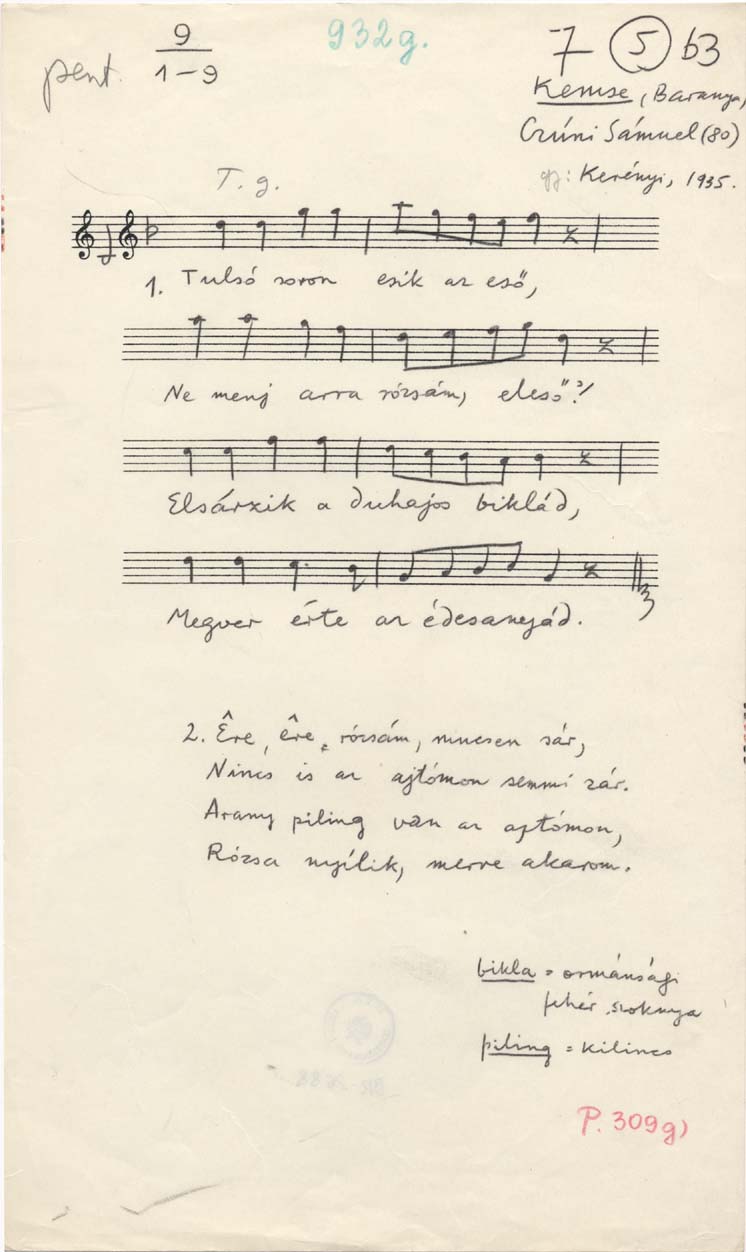 pent. 9
1-9
932g.
7 5 b3
Kemse, (Baranya)
Czúni Sámuel (80)
gy: Kerényi, 1935.
T. g.
1. Tulsó soron esik az eső,
Ne menj arra rózsám, eleső?!
Elsárzik a duhajos biklád,
Megver érte az édesanyád.
2. Êre, êre, rózsám, nincsen sár,
Nincs is az ajtómon semmi zár.
Arany piling van az ajtómon,
Rózsa nyílik, merre akarom.
bikla = ormánsági
fehér szoknya
piling = kilincs
P. 309g)